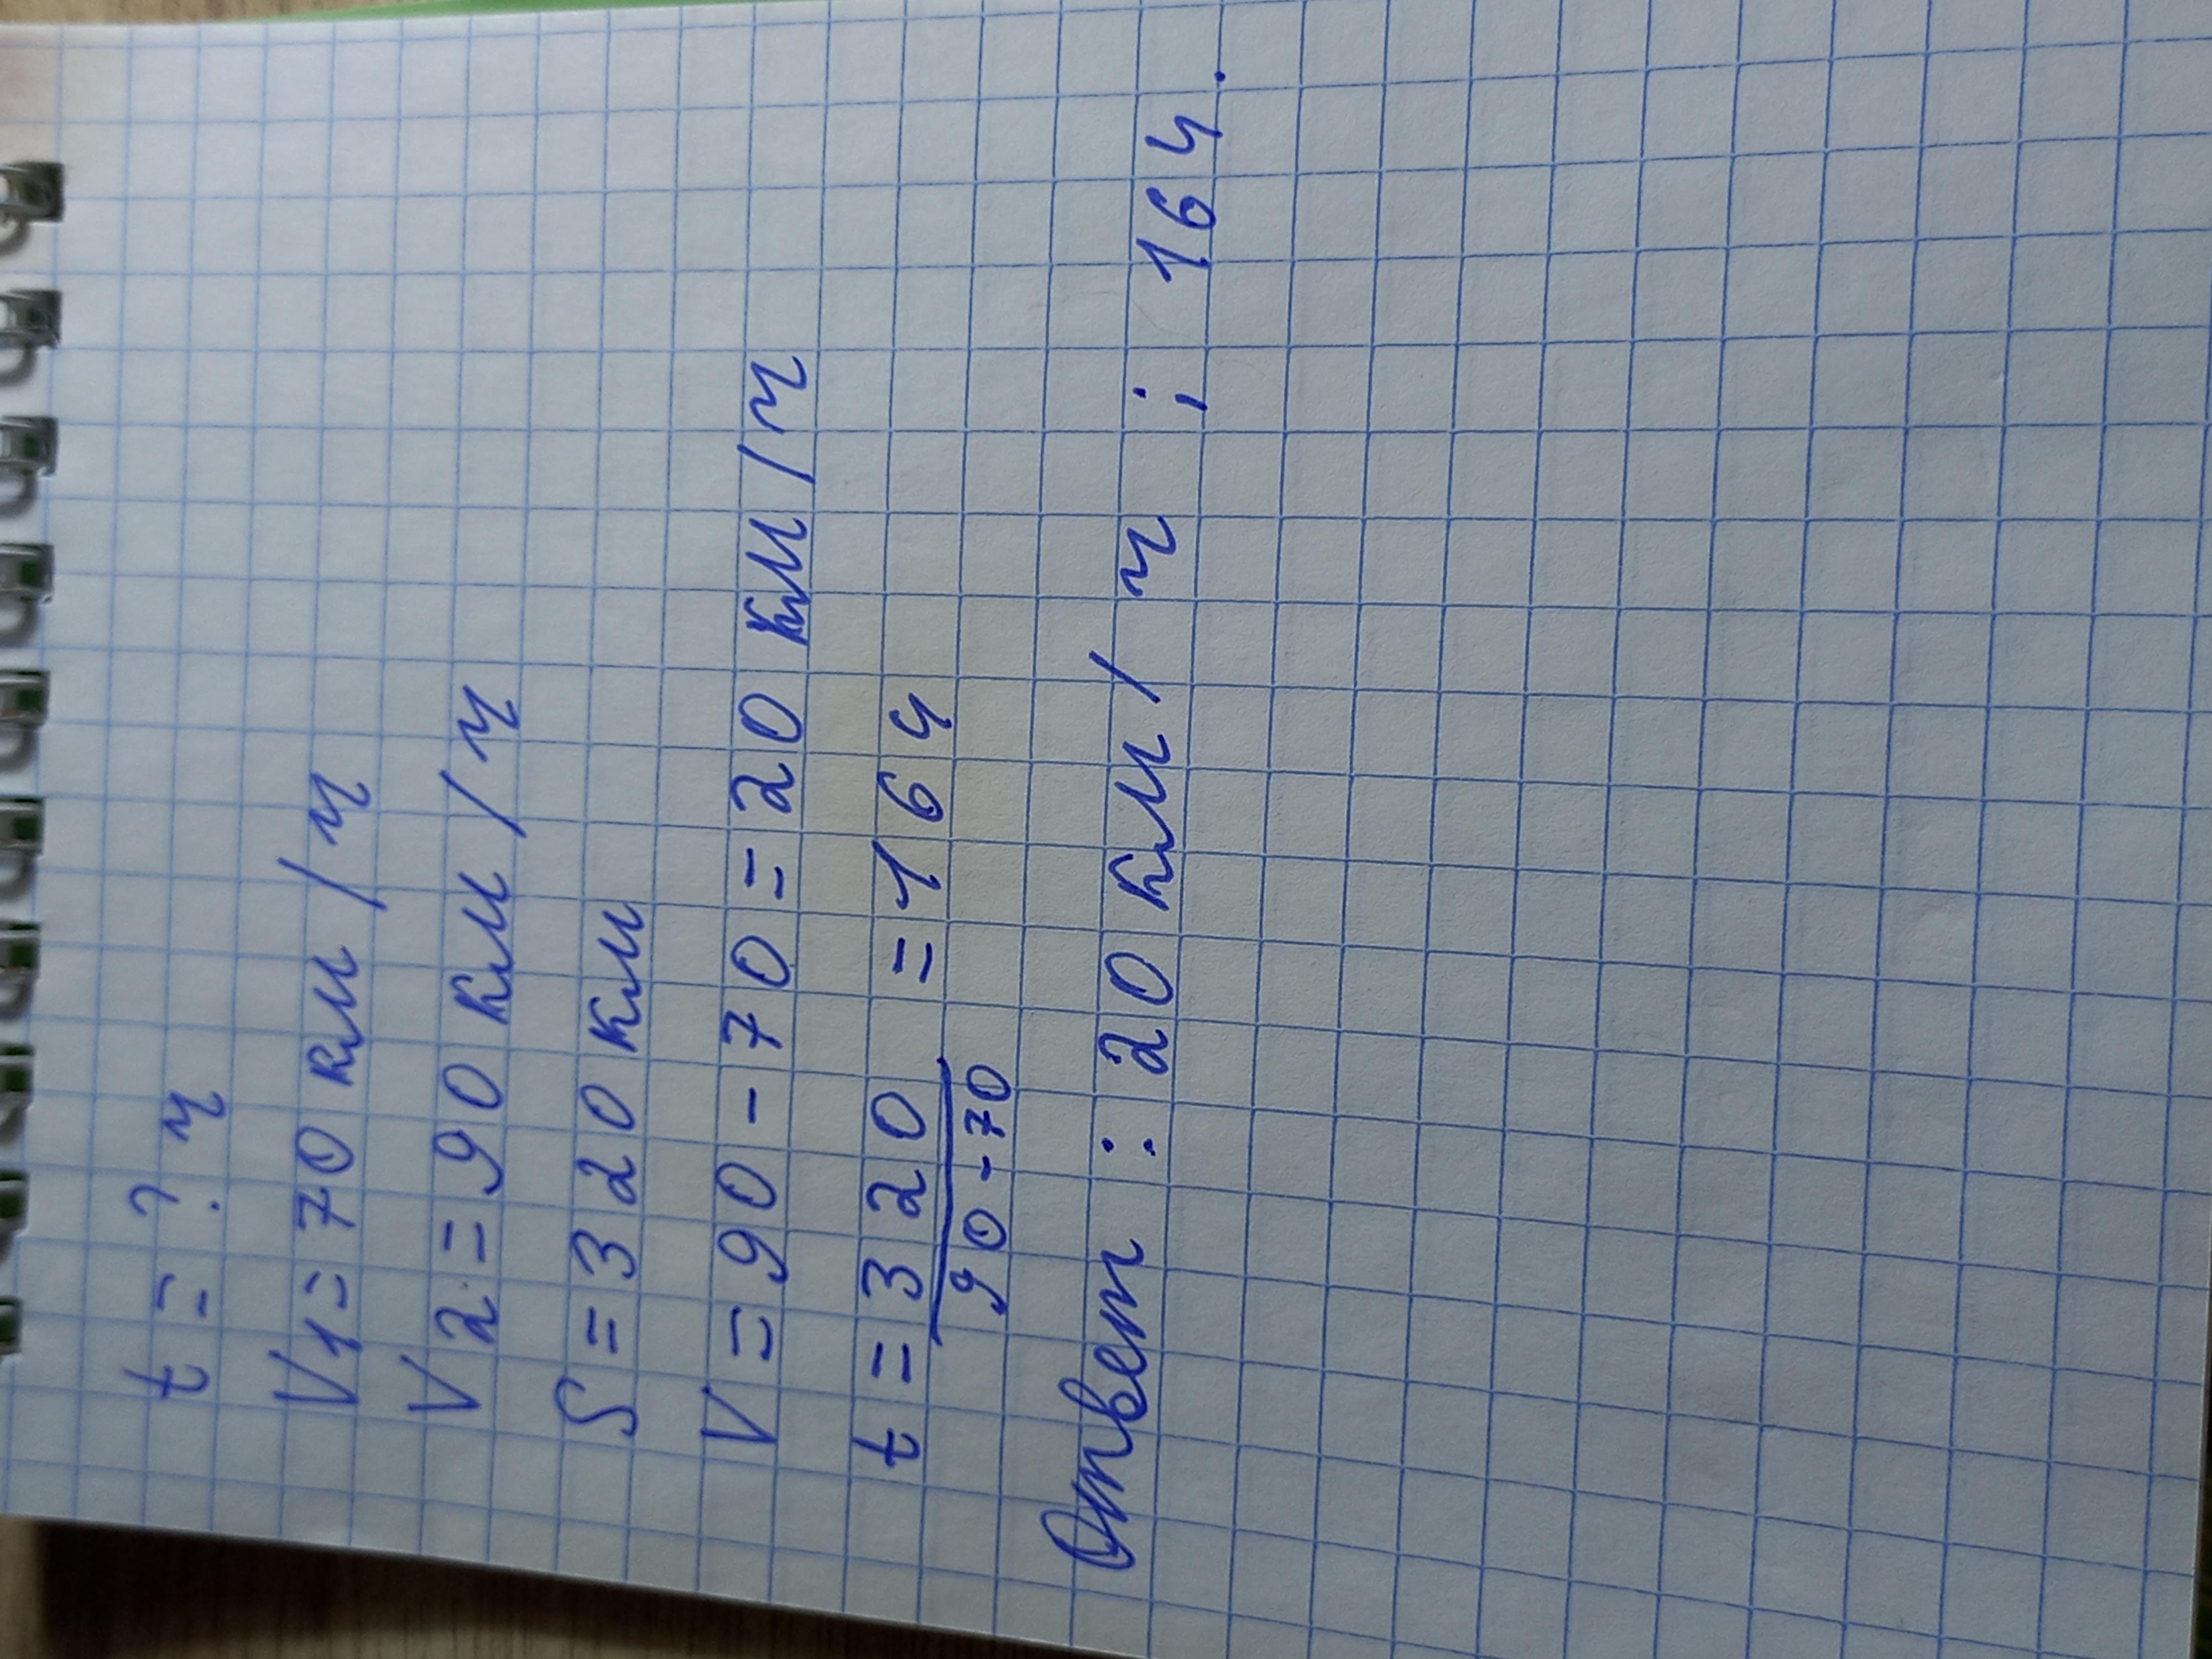 t = ? ч
V1 = 70 км / ч
V2 = 90 км / ч
S = 320 км
V = 90 - 70 = 20 км / ч
t = 320 = 16 ч
90 - 70
Ответ : 20 км / ч ; 16 ч.